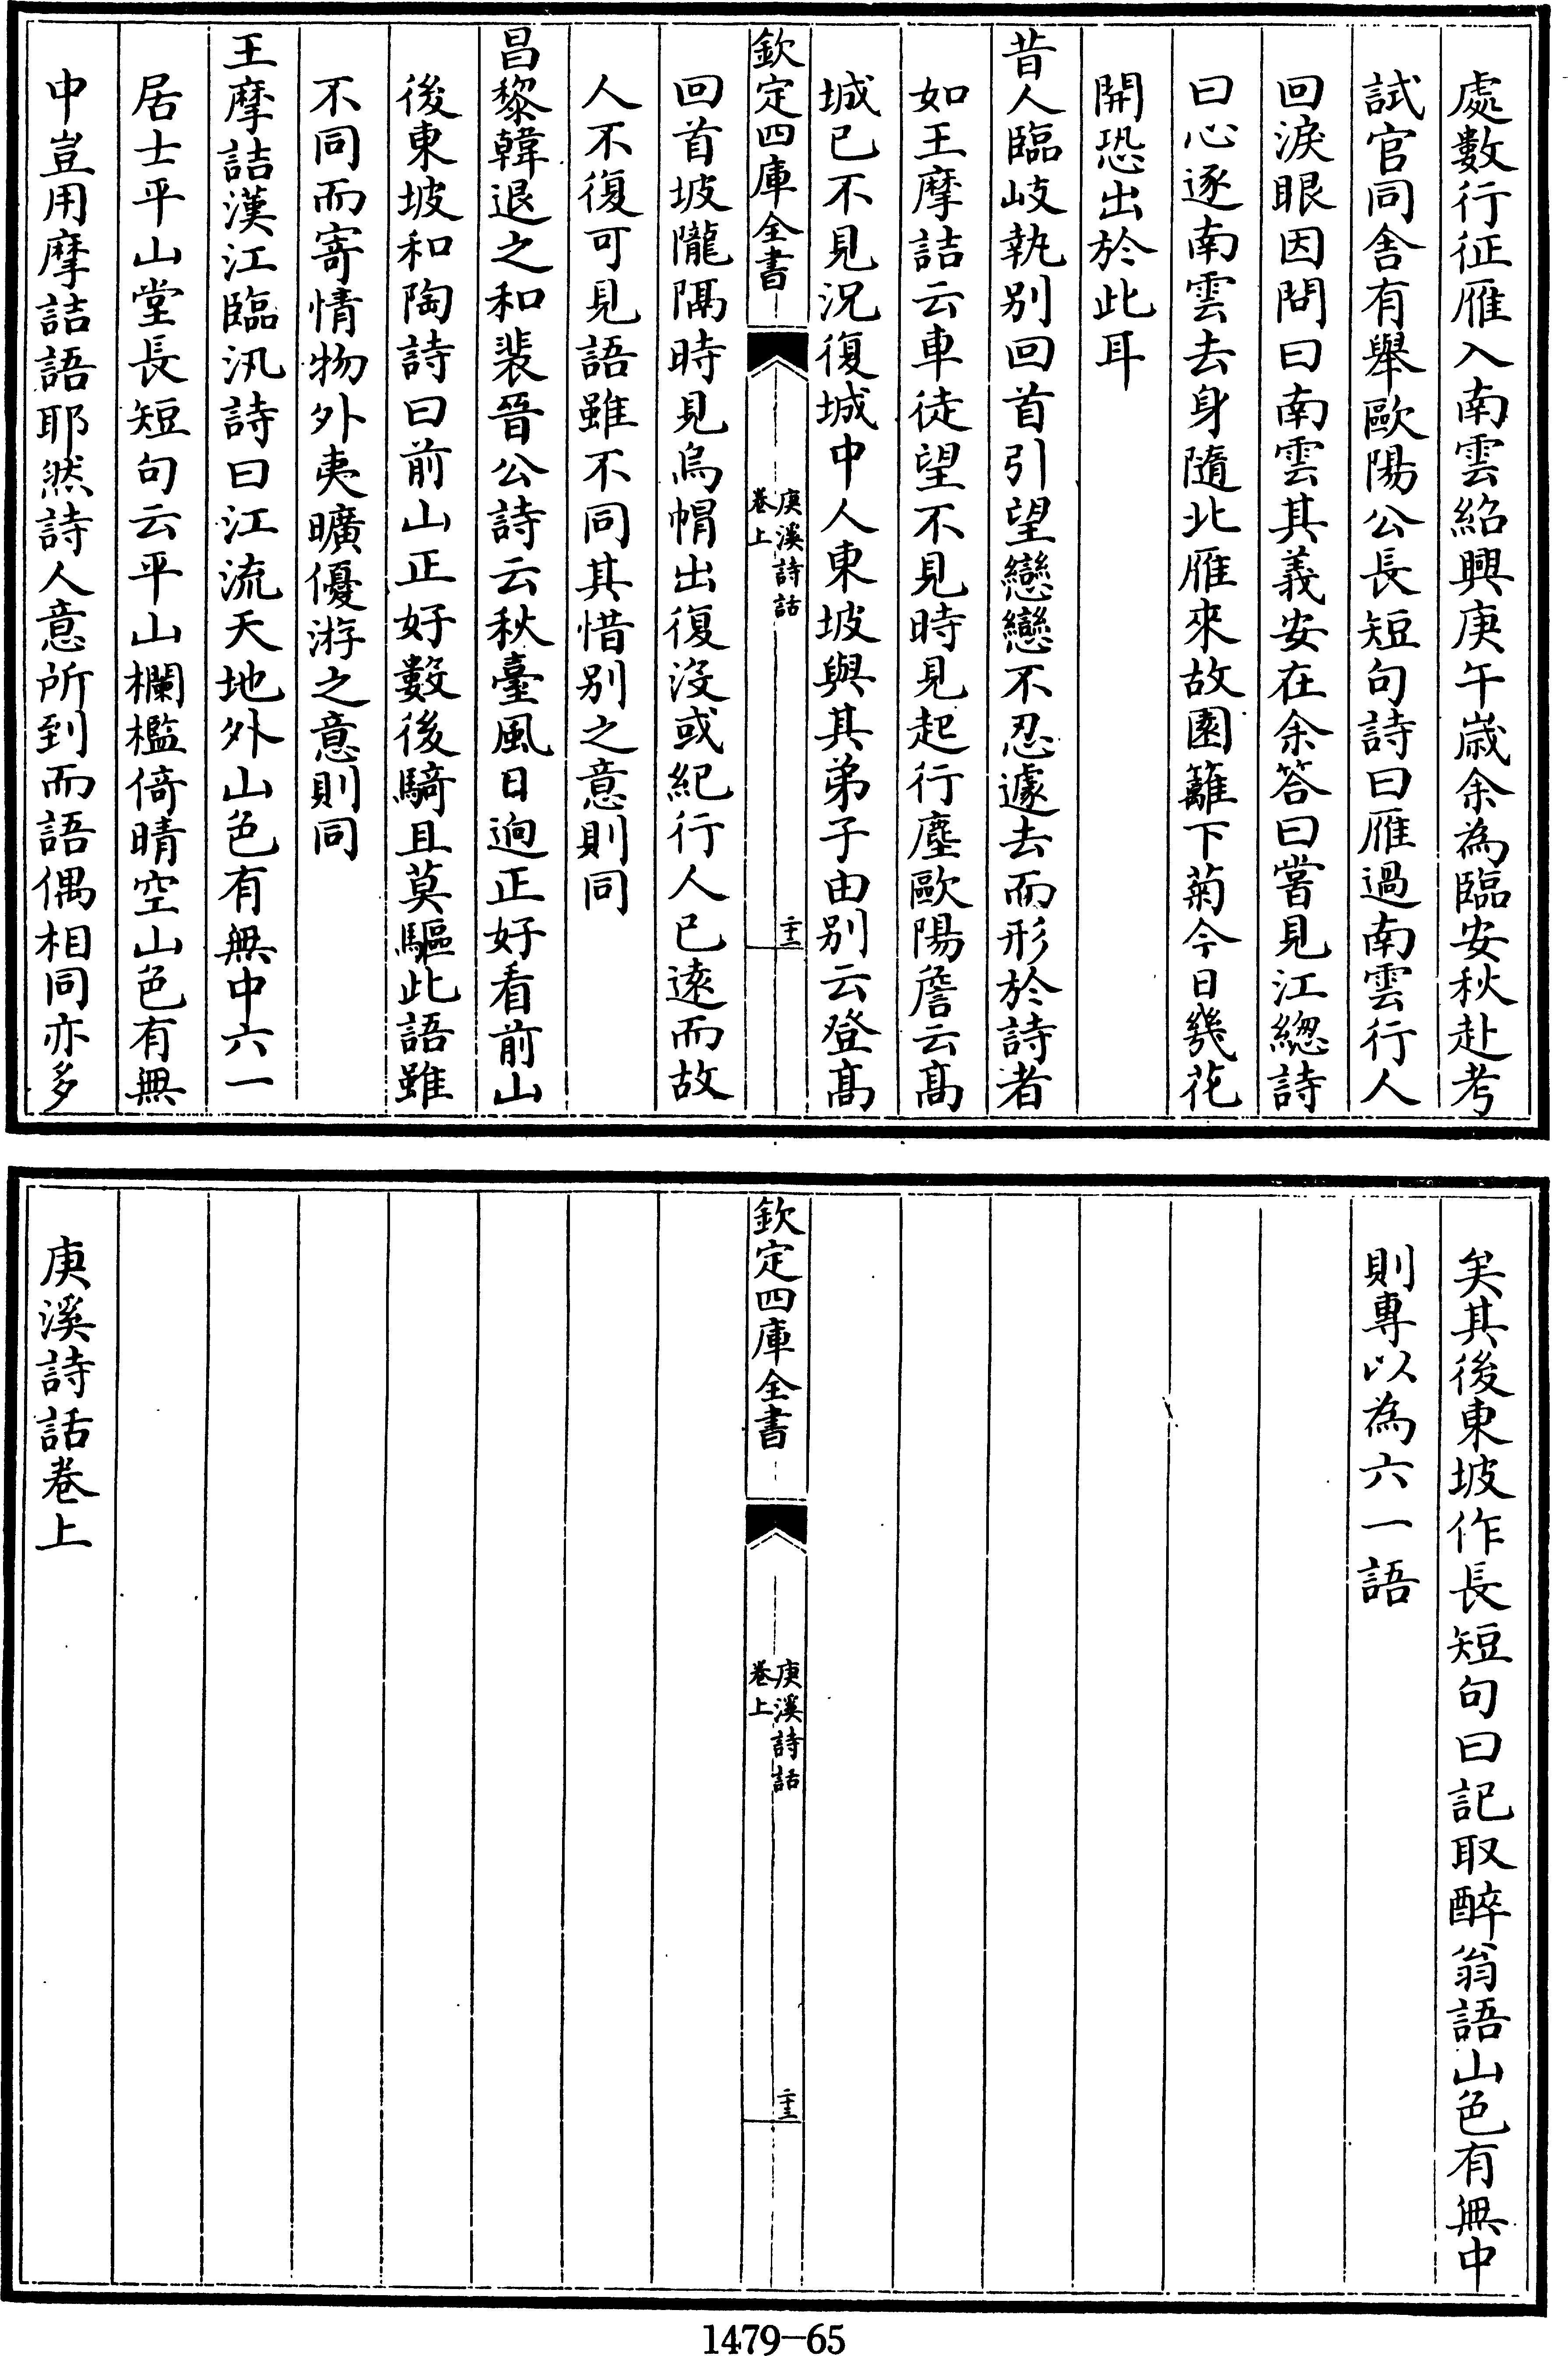 處數行征雁入南雲紹興庚午嵗余為臨安秋赴考
試官同舍有舉歐陽公長短句詩曰雁過南雲行人
回淚眼因問曰南雲其義安在余答曰嘗見江緫詩
曰心逐南雲去身隨北雁來故園籬下菊今日幾花
開恐出於此耳
昔人臨岐執别回首引望戀戀不忍遽去而形於詩者
如王摩詰云車徒望不見時見起行塵歐陽詹云髙
城已不見況復城中人東坡與其弟子由别云登髙
欽定四庫全書
庚溪詩話
卷上
二十二
回首坡隴隔時見烏帽出復沒或紀行人已遠而故
人不復可見語雖不同其惜别之意則同
昌黎韓退之和裴晉公詩云秋臺風日逈正好看前山
後東坡和陶詩曰前山正好數後騎且莫驅此語雖
不同而寄情物外夷曠優游之意則同
王摩詰漢江臨汎詩曰江流天地外山色有無中六一
居士平山堂長短句云平山欄檻倚晴空山色有無
中豈用摩詰語耶然詩人意所到而語偶相同亦多
矣其後東坡作長短句曰記取醉翁語山色有無中
則專以為六一語
欽定四庫全書
庚溪詩話
卷上
二十三
庚溪詩話卷上
1479-65